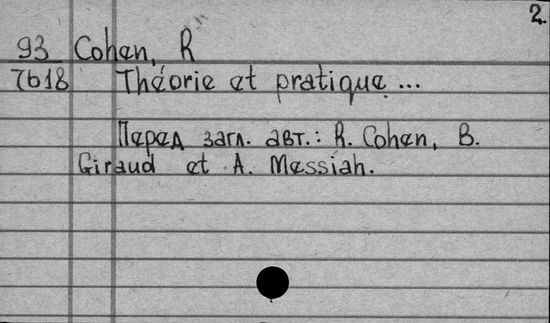 2.
93 Cohen, R
7618 Théorie et pratique...
Перед загл. авт.: R. Cohen, B.
Giraud et A. Messiah.